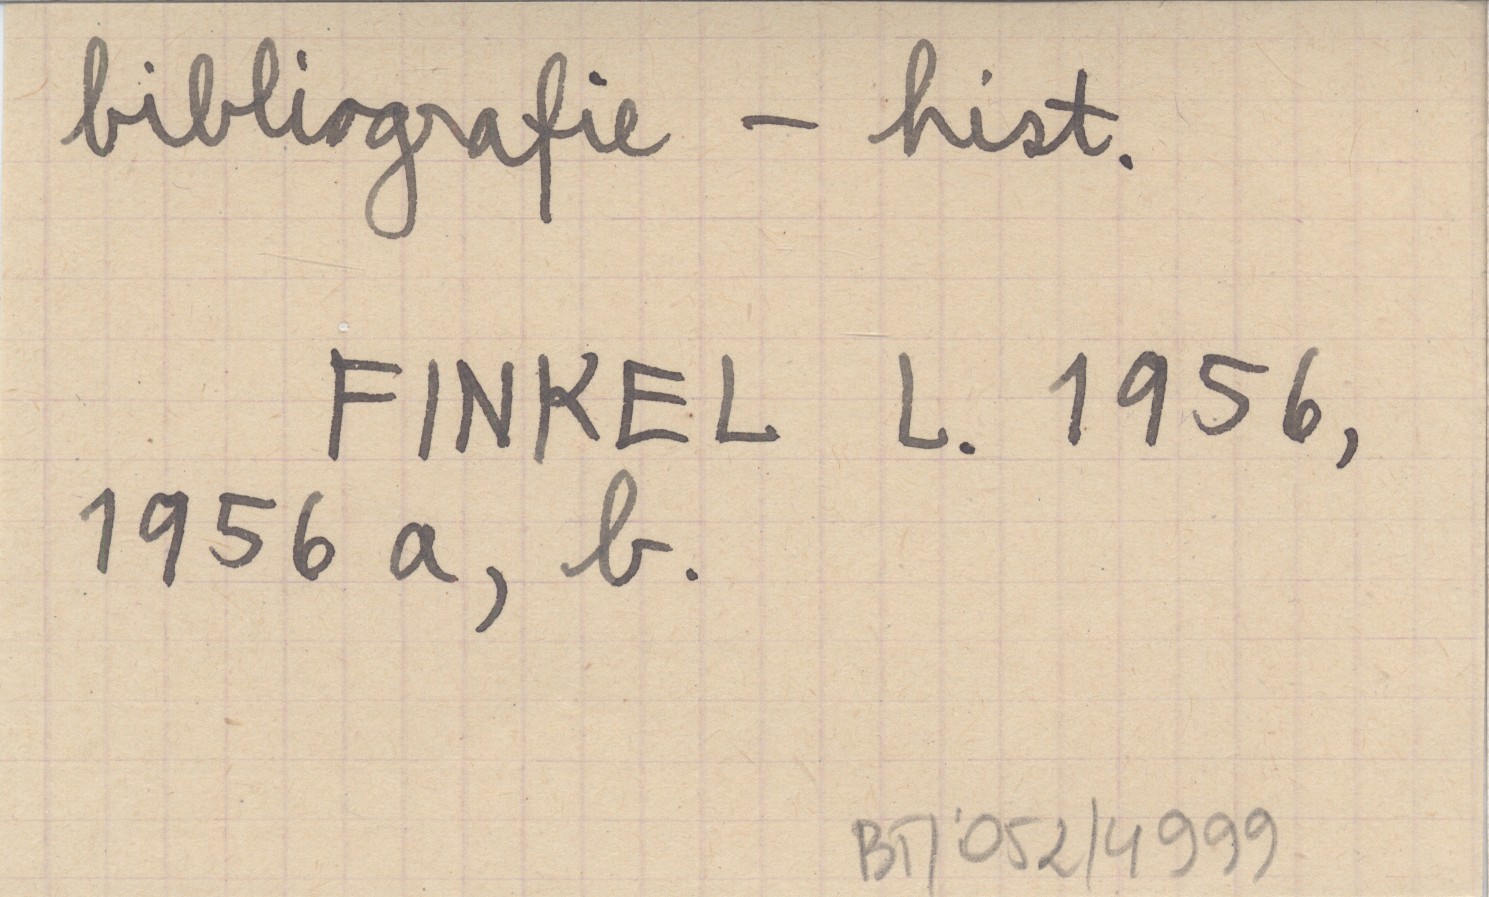 bibliografie – hist.
FINKEL L. 1956,
1956 a, b.
BT/052/4999